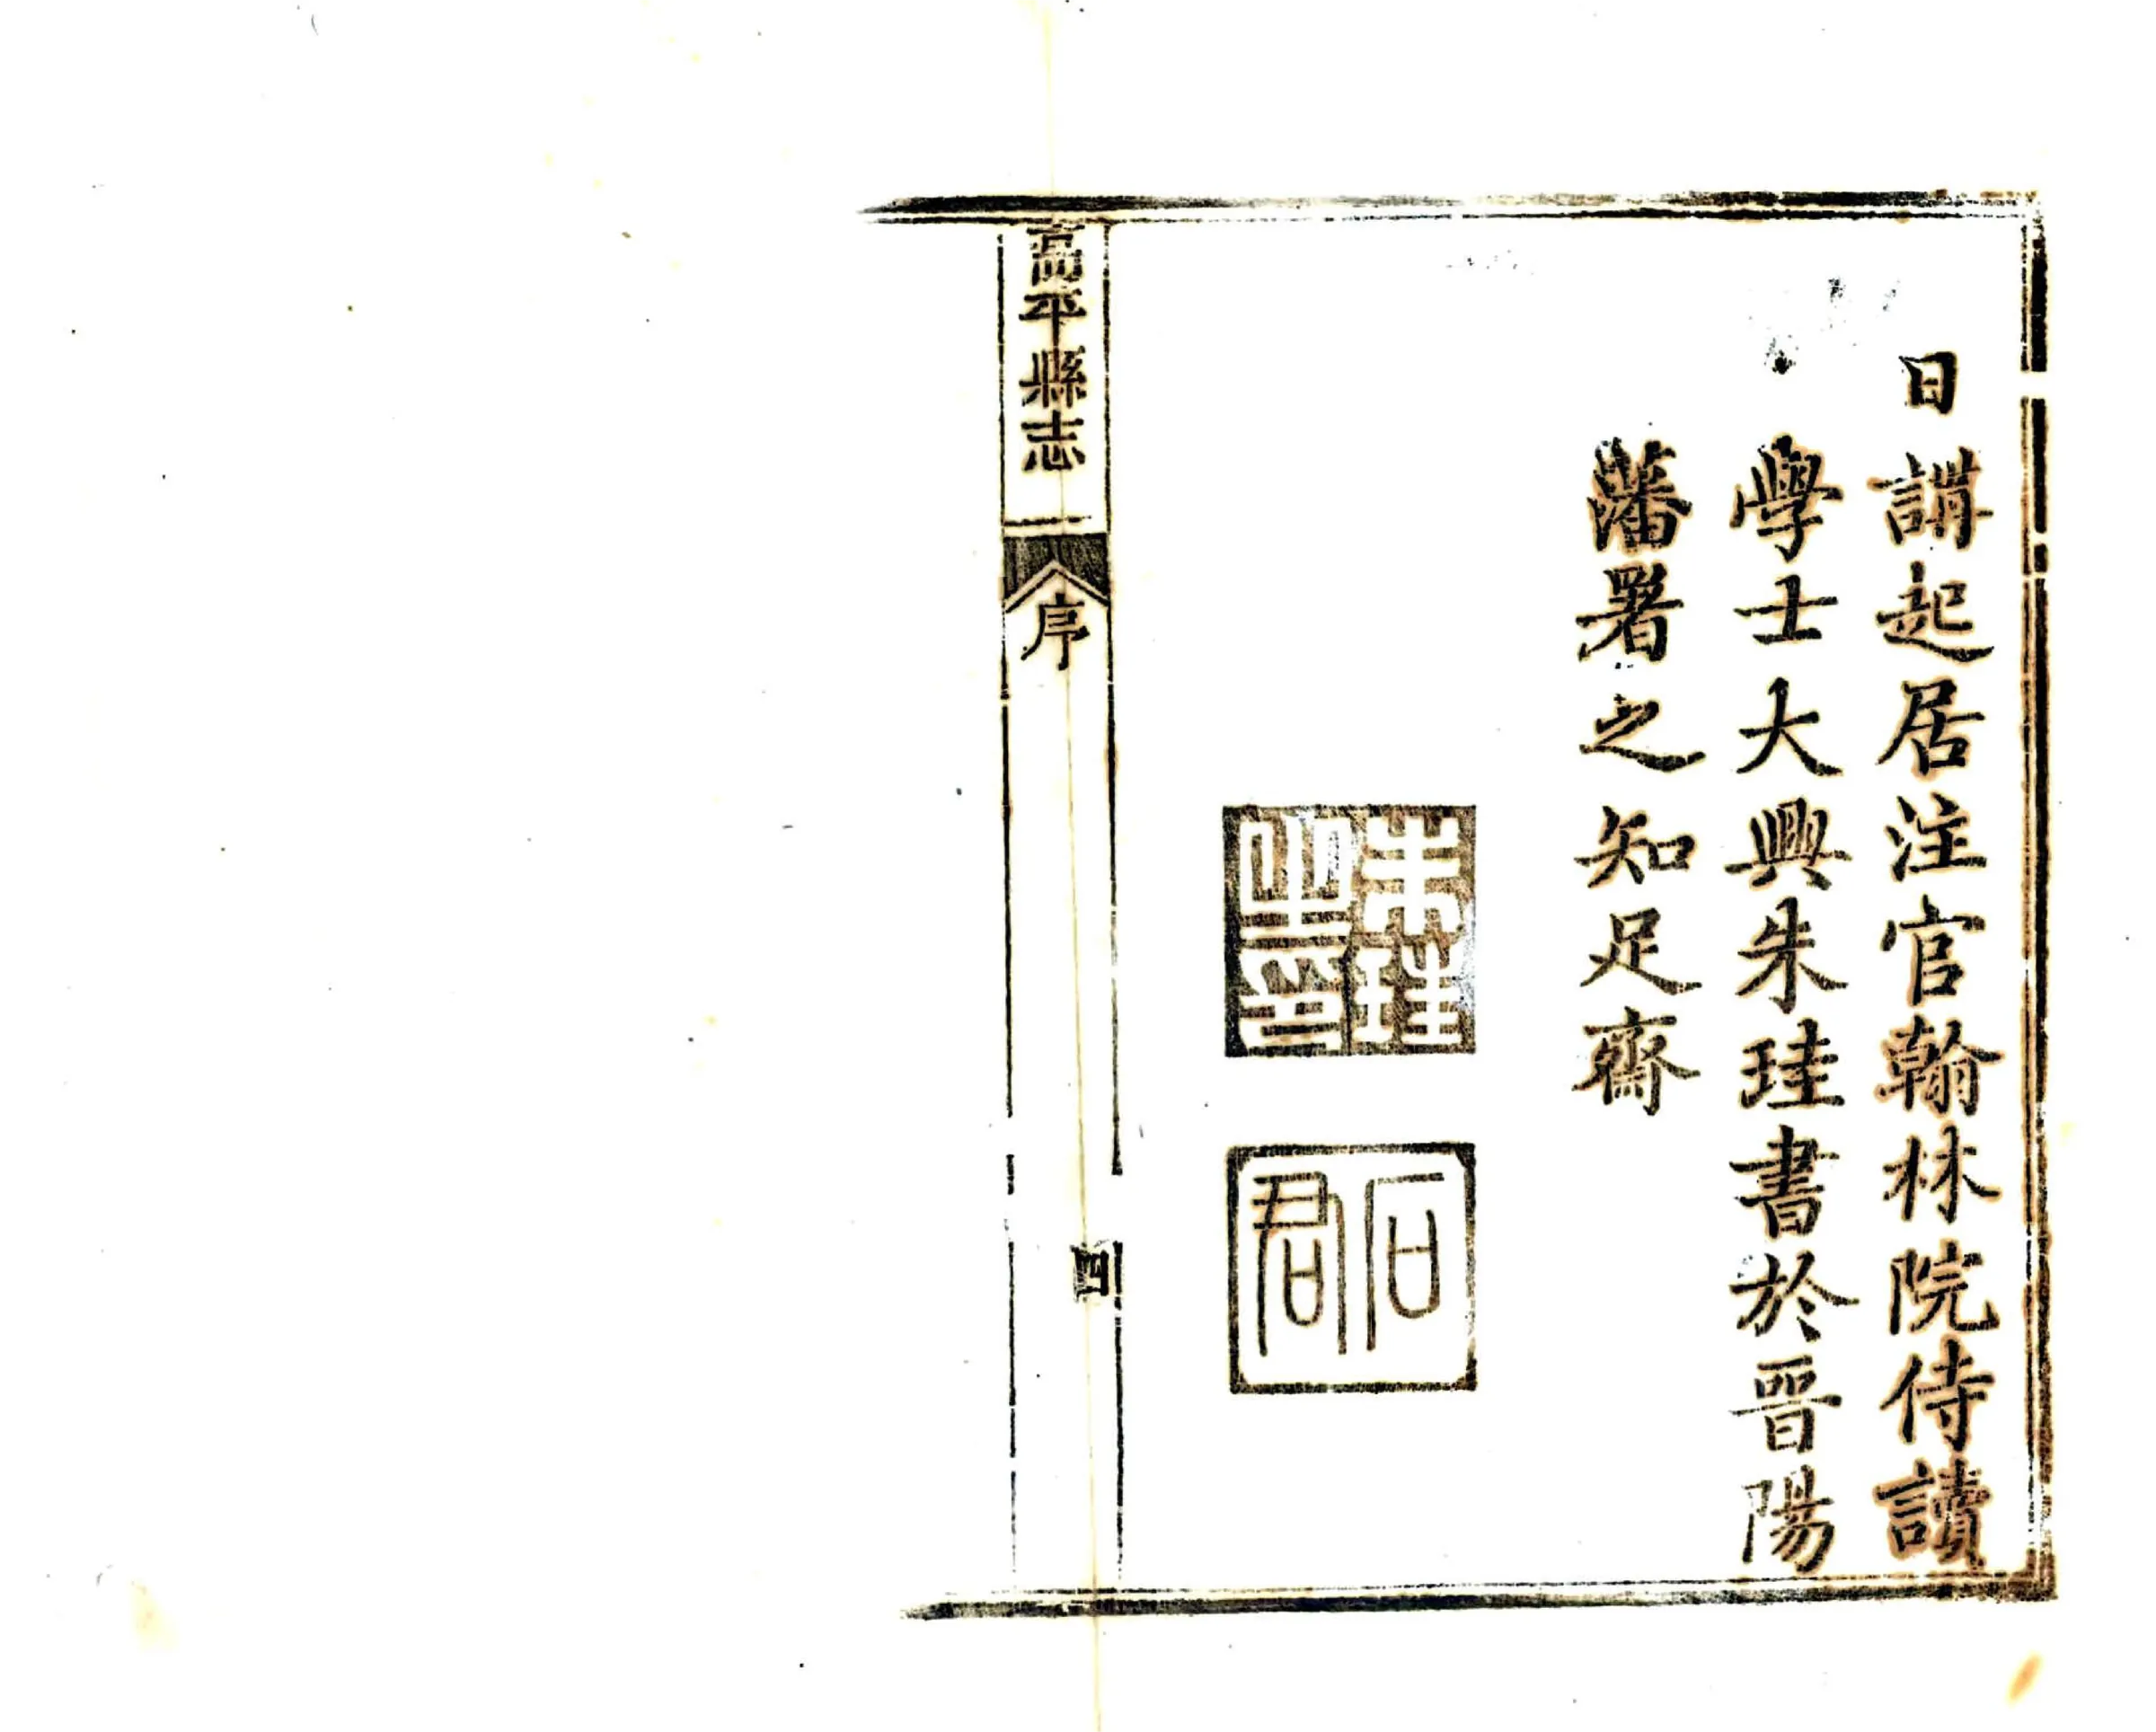 日講起居注官翰林院侍讀
學士大興朱珪書於晉陽
藩署之知足齋
朱珪
之印
石
君
高平縣志
序
四